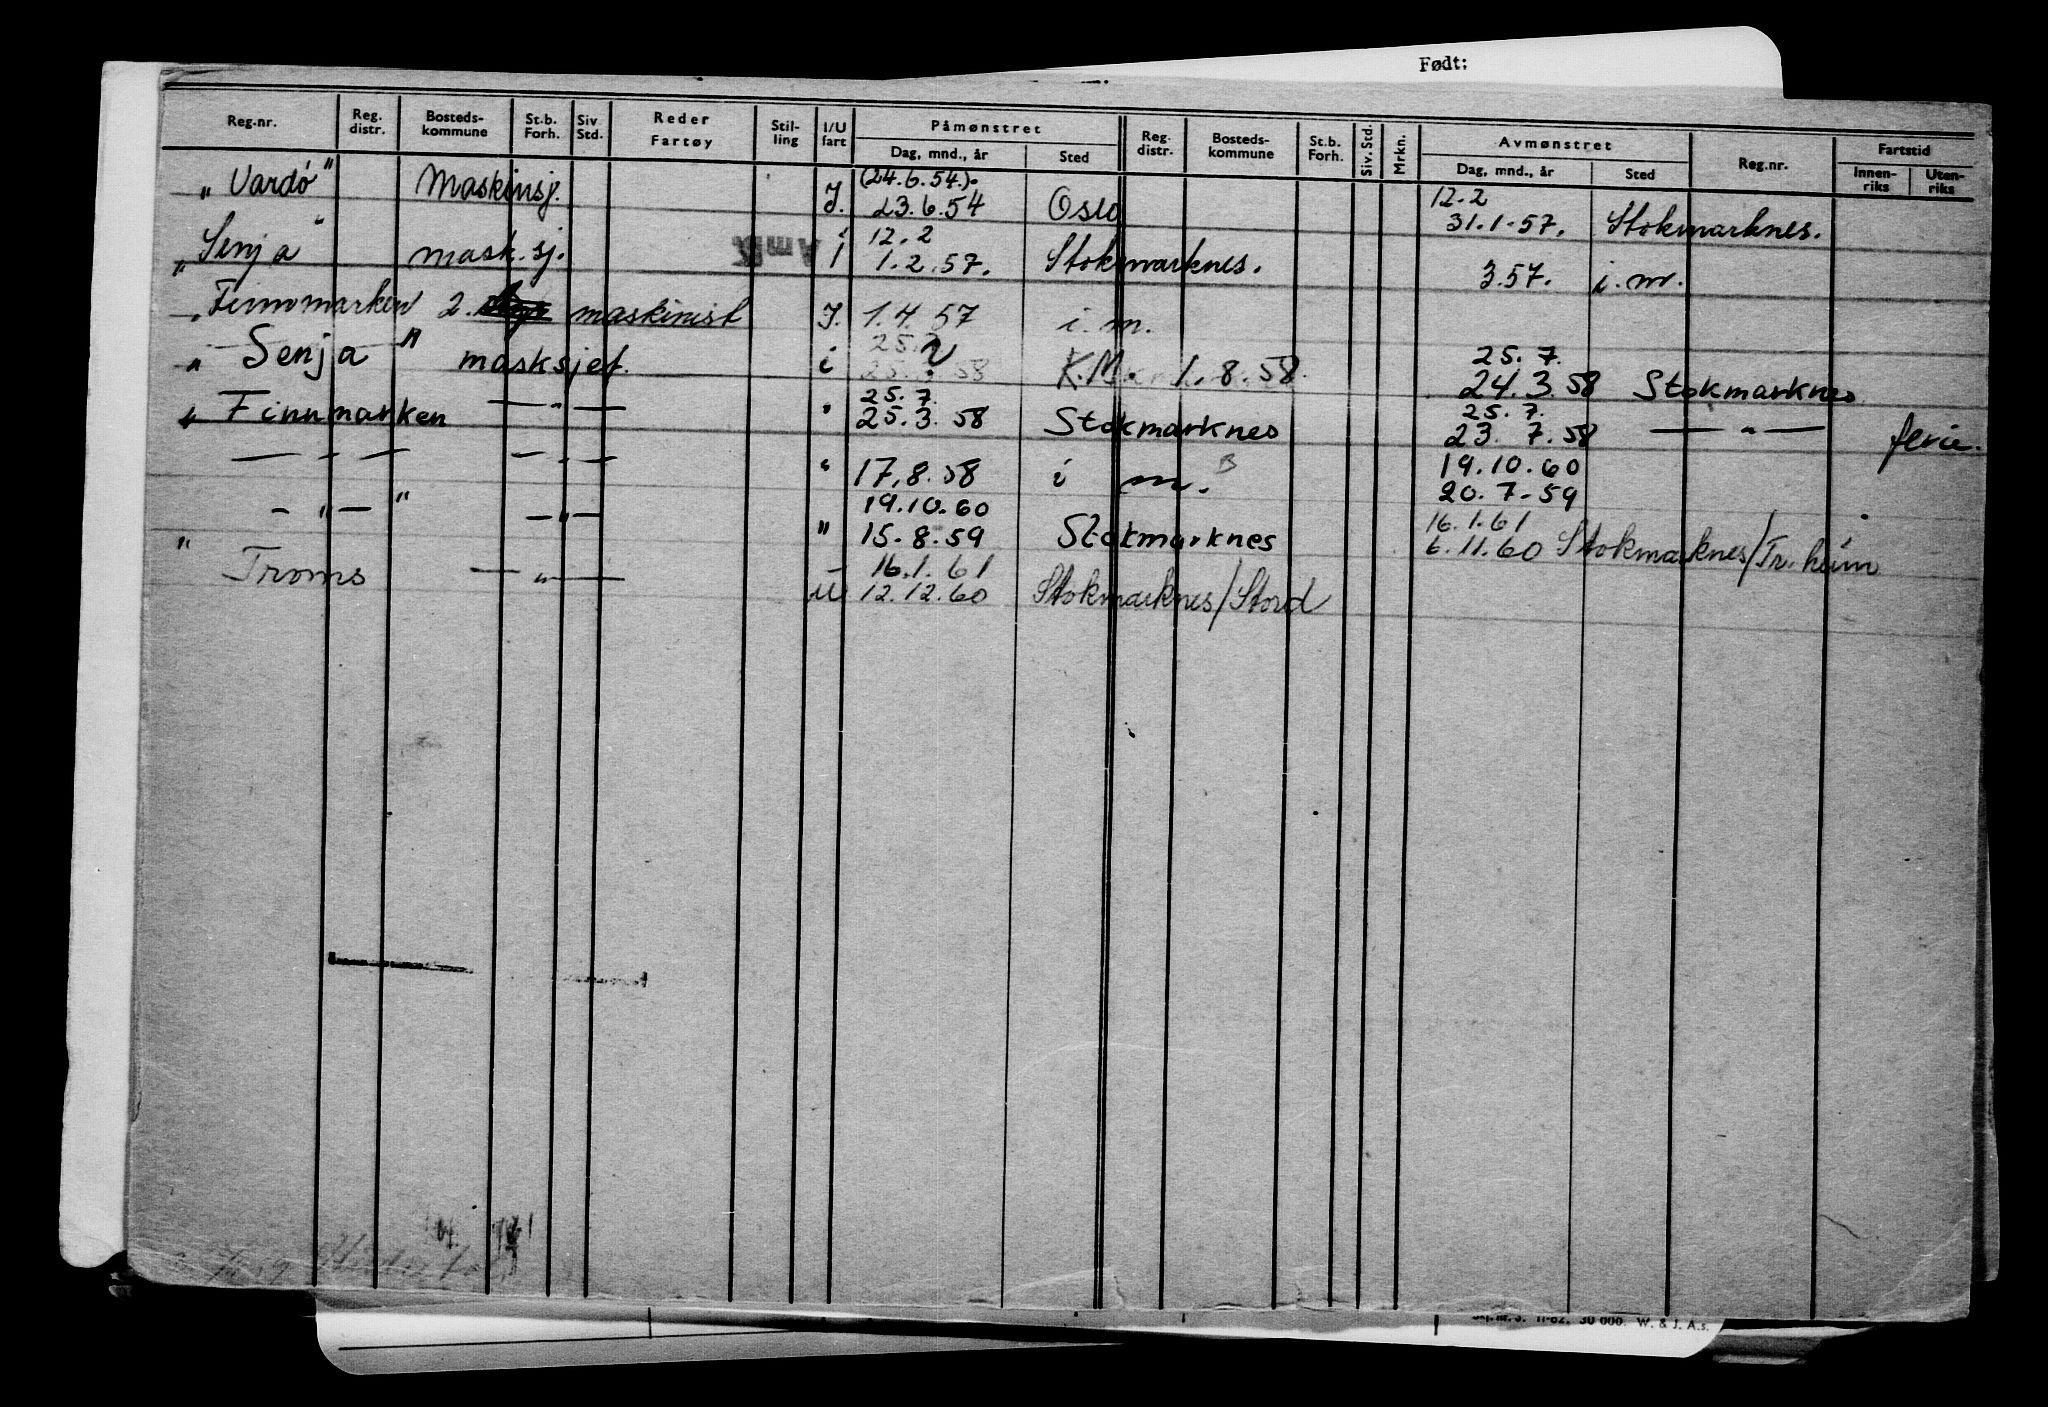 Født:
Reg.nr. Reg. distr. Bosteds-kommune St.b. Forh. Siv Std. Reder Fartøy Stil-ling I/U fart Påmønstret Dag, mnd., år Sted Reg. distr. Bosteds-kommune St.b. Forh. Siv. Std. Mrkn. Avmønstret Dag, mnd., år Sted Reg.nr. Fartstid Innen-riks Uten-riks
(24.6.54). 12.2
"Vardø" Maskinsj. J. 23.6.54 Oslo 31.1.57. Stokmarknes.
12.2
"Senja" mask.sj. i 1.2.57. Stokmarknes. 3.57. i.m.
"Finnmarken 2. maskinist J. 1.4.57 i.m.
25. 25.7.
"Senja" masksjef. i 58 K.M. 1.8.58. 24.3.58 Stokmarknes
25.7. 25.7.
"Finnmarken — " — " 25.3.58 Stokmarknes 23.7.58 — " — ferie.
— " — — " — " 17.8.58 i m. B 19.10.60
20.7-59
19.10.60 16.1.61
— " — " — " — " 15.8.59 Stokmarknes 6.11.60 Stokmarknes/Tr.heim
16.1.61
" Troms — " — u 12.12.60 Stokmarknes/Stord
11-62. 30 000. W. & J. A.s.